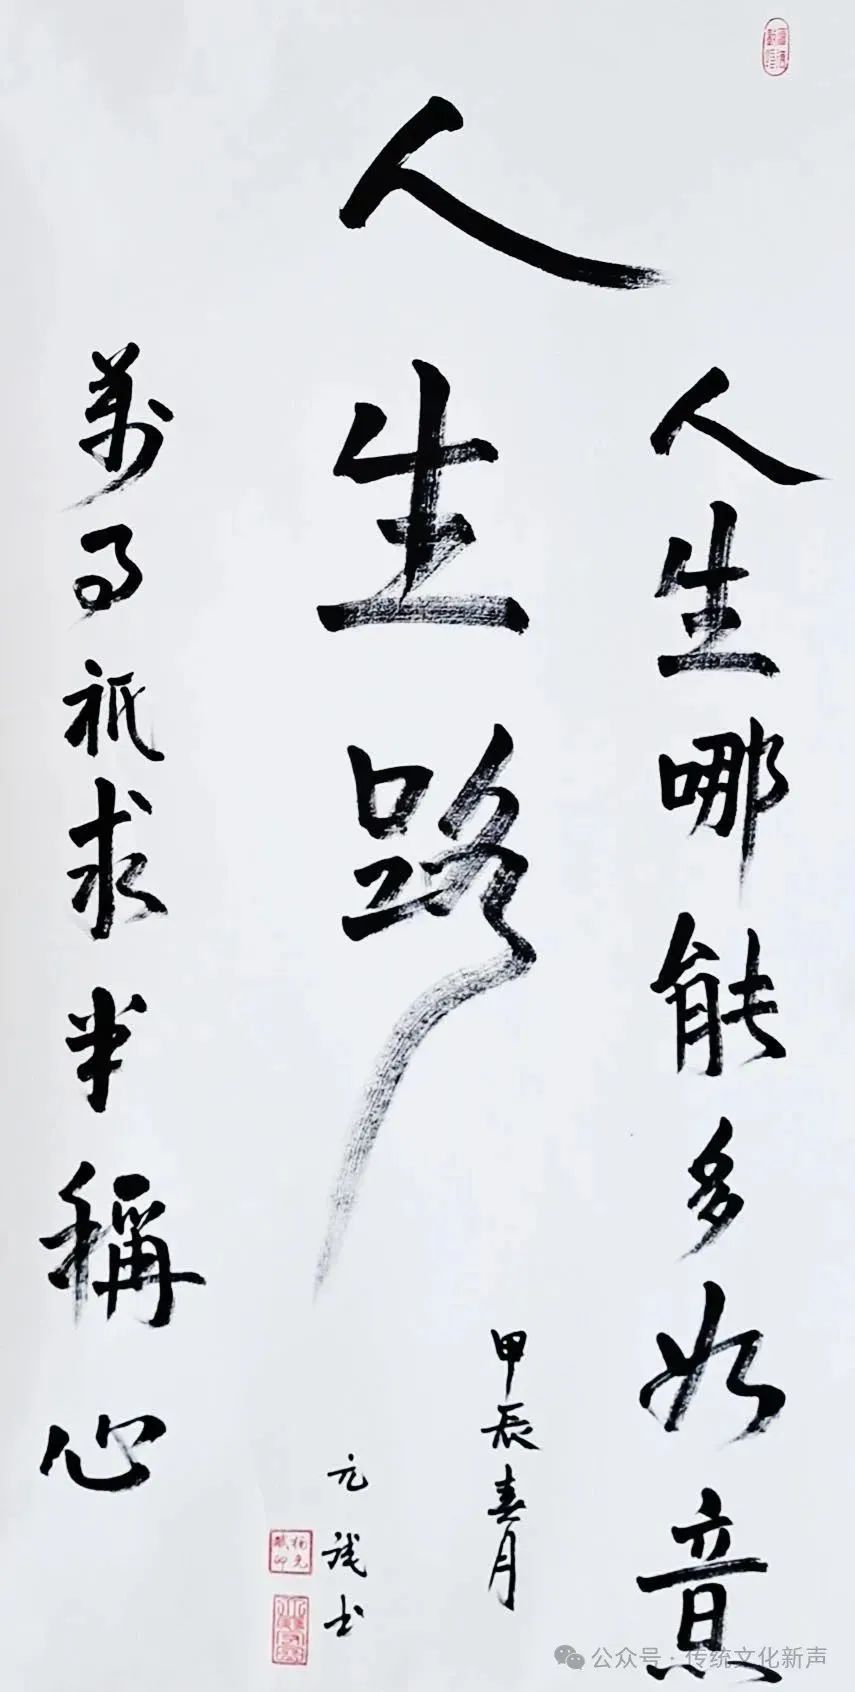 人生路
人生哪能多如意
萬事祇求半稱心
甲辰春月
元诚书
公众号·传统文化新声